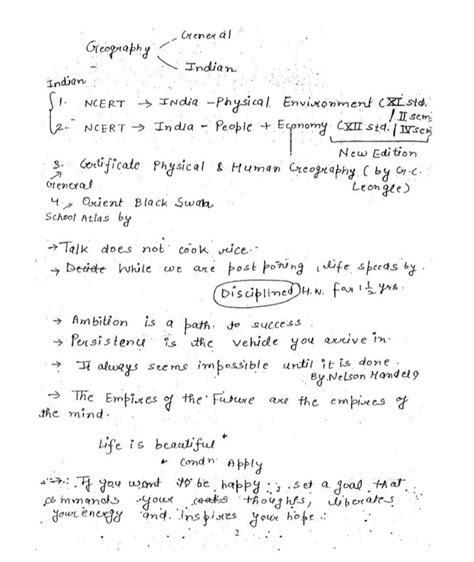 General
Geography
Indian
Indian
1. NCERT → India - Physical Environment (XI std. / II sem
2. NCERT → India - People + Economy (XII std. / IV sem
New Edition
3. Certificate Physical & Human Geography (by G.C.
General Leongle)
4. Orient Black Swan
School Atlas by
→ Talk does not cook rice.
→ Decide While we are post poning, life speeds by.
Disciplined H.N. for 1½ yrs.
→ Ambition is a path to success.
→ Persistence is the vehicle you arrive in.
→ It always seems impossible until it is done.
By. Nelson Mandela
→ The Empires of the Future are the empires of
the mind.
Life is beautiful *
* Condn Apply
→ If you want to be happy, set a goal that
commands your thoughts, liberates
your energy and inspires your hope.
2